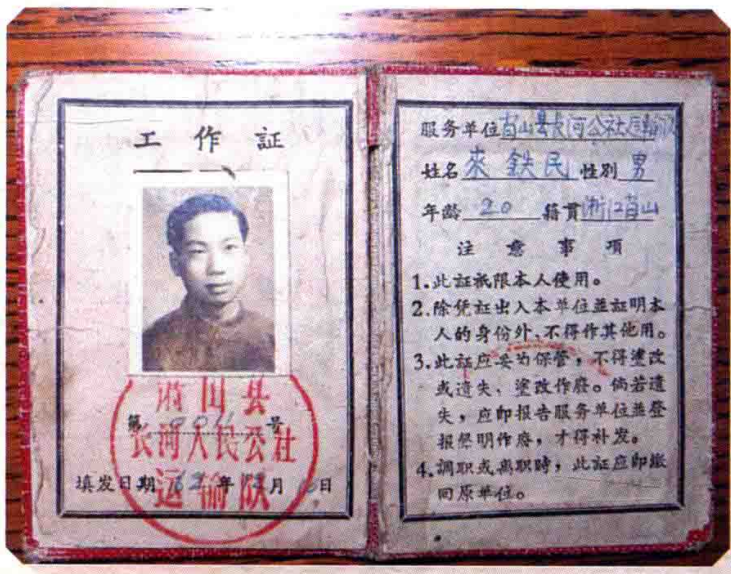 工作証
萧山县
第 号
长河人民公社
运输队
填发日期 62 年 12 月 日
服务单位 肖山县长河公社运输队
姓名 來鉄民 性别 男
年龄 20 籍貫 浙江肖山
注意事項
1.此証祇限本人使用。
2.除凭証出入本单位並証明本
人的身份外、不得作其他用。
3.此証应妥为保管，不得塗改
或遗失、塗改作廢。倘若遗
失，应即报告服务单位並登
报声明作廢，才得补发。
4.調职或离职時，此証应即缴
回原单位。